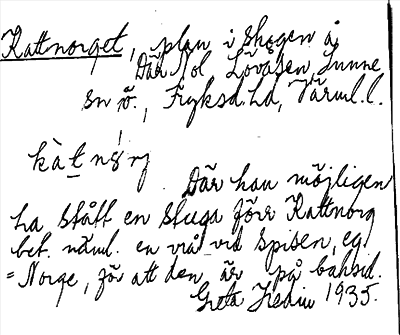 Kattnorget, plan i skogen å
Där N ol Lövåsen, Sunne
sn ö., Fryksd. hd, Värml. l.
kàt nór̨
Där han möjligen
ha stått en stuga förr Kattnorg
bet. näml. en vrå vid spisen, eg.
= Norge, för att den är på baksid.
Greta Hedin 1935.